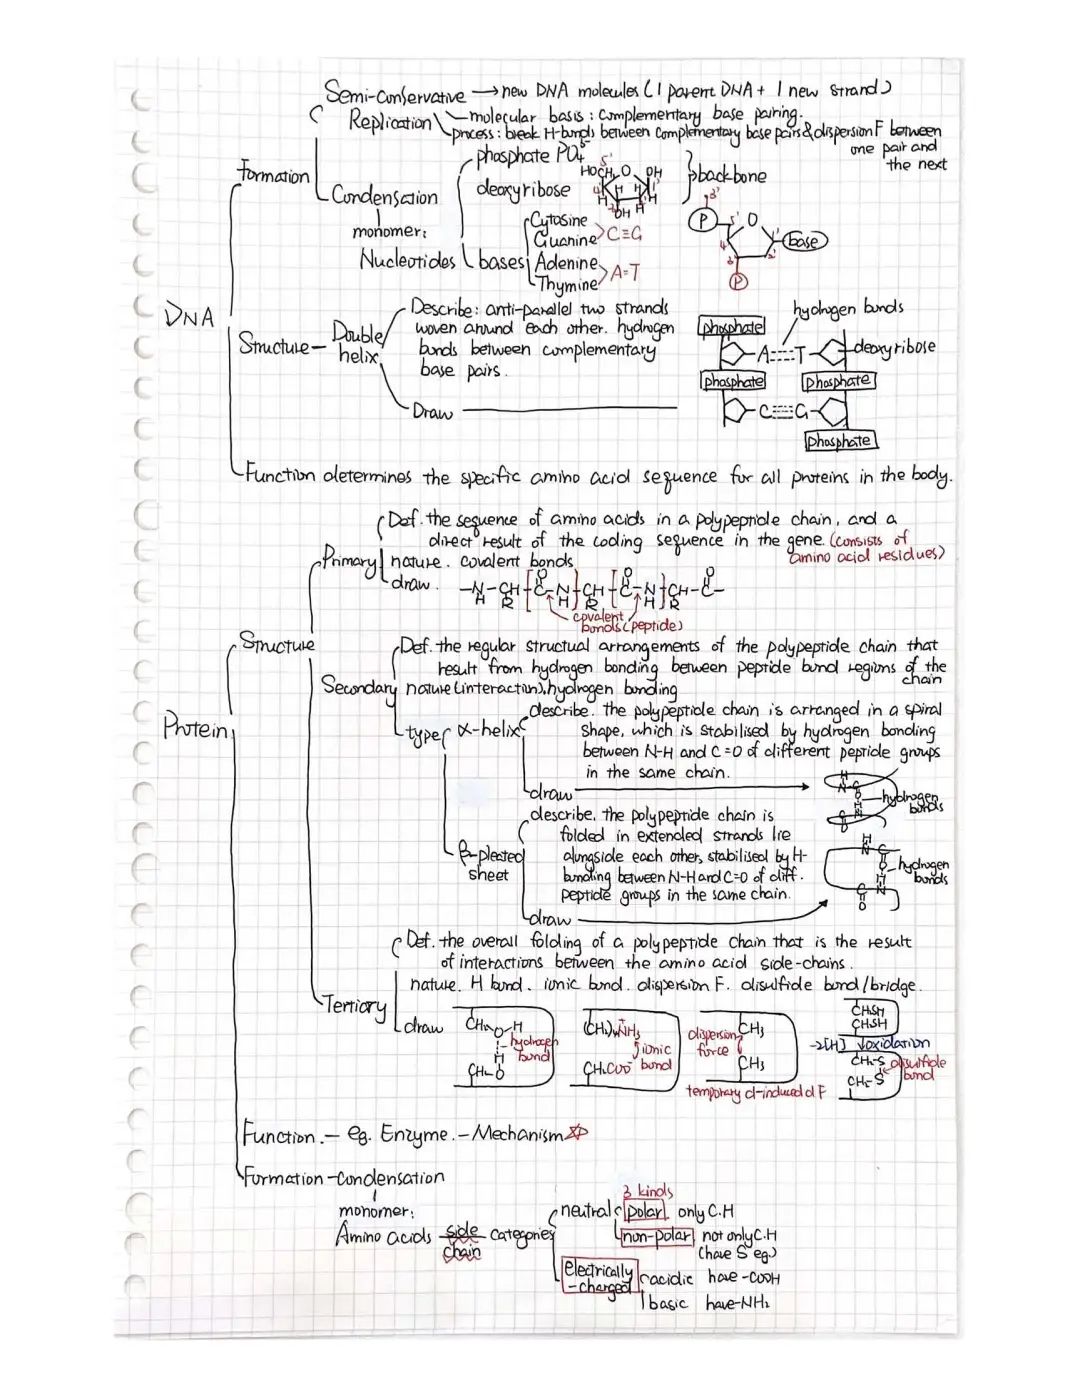 Semi-conservative → new DNA molecules (1 parent DNA + 1 new strand)
Replication
molecular basis: complementary base pairing.
process: break H-bonds between complementary base pairs & dispersion F between
one pair and
the next
Formation
Condensation
monomer:
Nucleotides
phosphate PO₄³⁻
deoxyribose
5'
HOCH₂ O OH
4' H H 1'
H H
3' OH H
backbone
bases
Cytosine
Guanine
C≡G
Adenine
Thymine
A=T
3'
P
5' O
1' base
4'
3' 2'
P
DNA
Structure
Double
helix
Describe: anti-parallel two strands
woven around each other. hydrogen
bonds between complementary
base pairs.
Draw
hydrogen bonds
phosphate
A::::T
deoxyribose
phosphate phosphate
C::::G
phosphate
Function determines the specific amino acid sequence for all proteins in the body.
Protein
Structure
Primary
Def. the sequence of amino acids in a polypeptide chain, and a
direct result of the coding sequence in the gene. (consists of
amino acid residues)
nature. covalent bonds
draw.
O O
-N-CH-[C-N]-CH-[C-N]-CH-C-
H R H R H R
covalent
bonds (peptide)
Secondary
Def. the regular structual arrangements of the polypeptide chain that
result from hydrogen bonding between peptide bond regions of the
chain
nature (interaction), hydrogen bonding
type
α-helix
describe. the polypeptide chain is arranged in a spiral
shape, which is stabilised by hydrogen bonding
between N-H and C=O of different peptide groups
in the same chain.
draw
hydrogen
bonds
β-pleated
sheet
describe. the polypeptide chain is
folded in extended strands lie
alongside each other, stabilised by H-
bonding between N-H and C=O of diff.
peptide groups in the same chain.
draw
hydrogen
bonds
Tertiary
Def. the overall folding of a polypeptide chain that is the result
of interactions between the amino acid side-chains.
nature. H bond. ionic bond. dispersion F. disulfide bond/bridge.
draw
CH₂ O-H
hydrogen
bond
H
CH₂-O
(CH₂)₄NH₃⁺
ionic
bond
CH₂COO⁻
dispersion
force
CH₃
CH₃
temporary d-induced d F
CH₂SH
CH₂SH
-2[H] ↓oxidation
CH₂-S
CH₂-S
disulfide
bond
Function. - eg. Enzyme. - Mechanism
Formation - condensation
monomer:
Amino acids
side
chain
categories
3 kinds
neutral
polar only C.H
non-polar not only C.H
(have S eg.)
Electrically
-charged
acidic have -COOH
basic have -NH₂